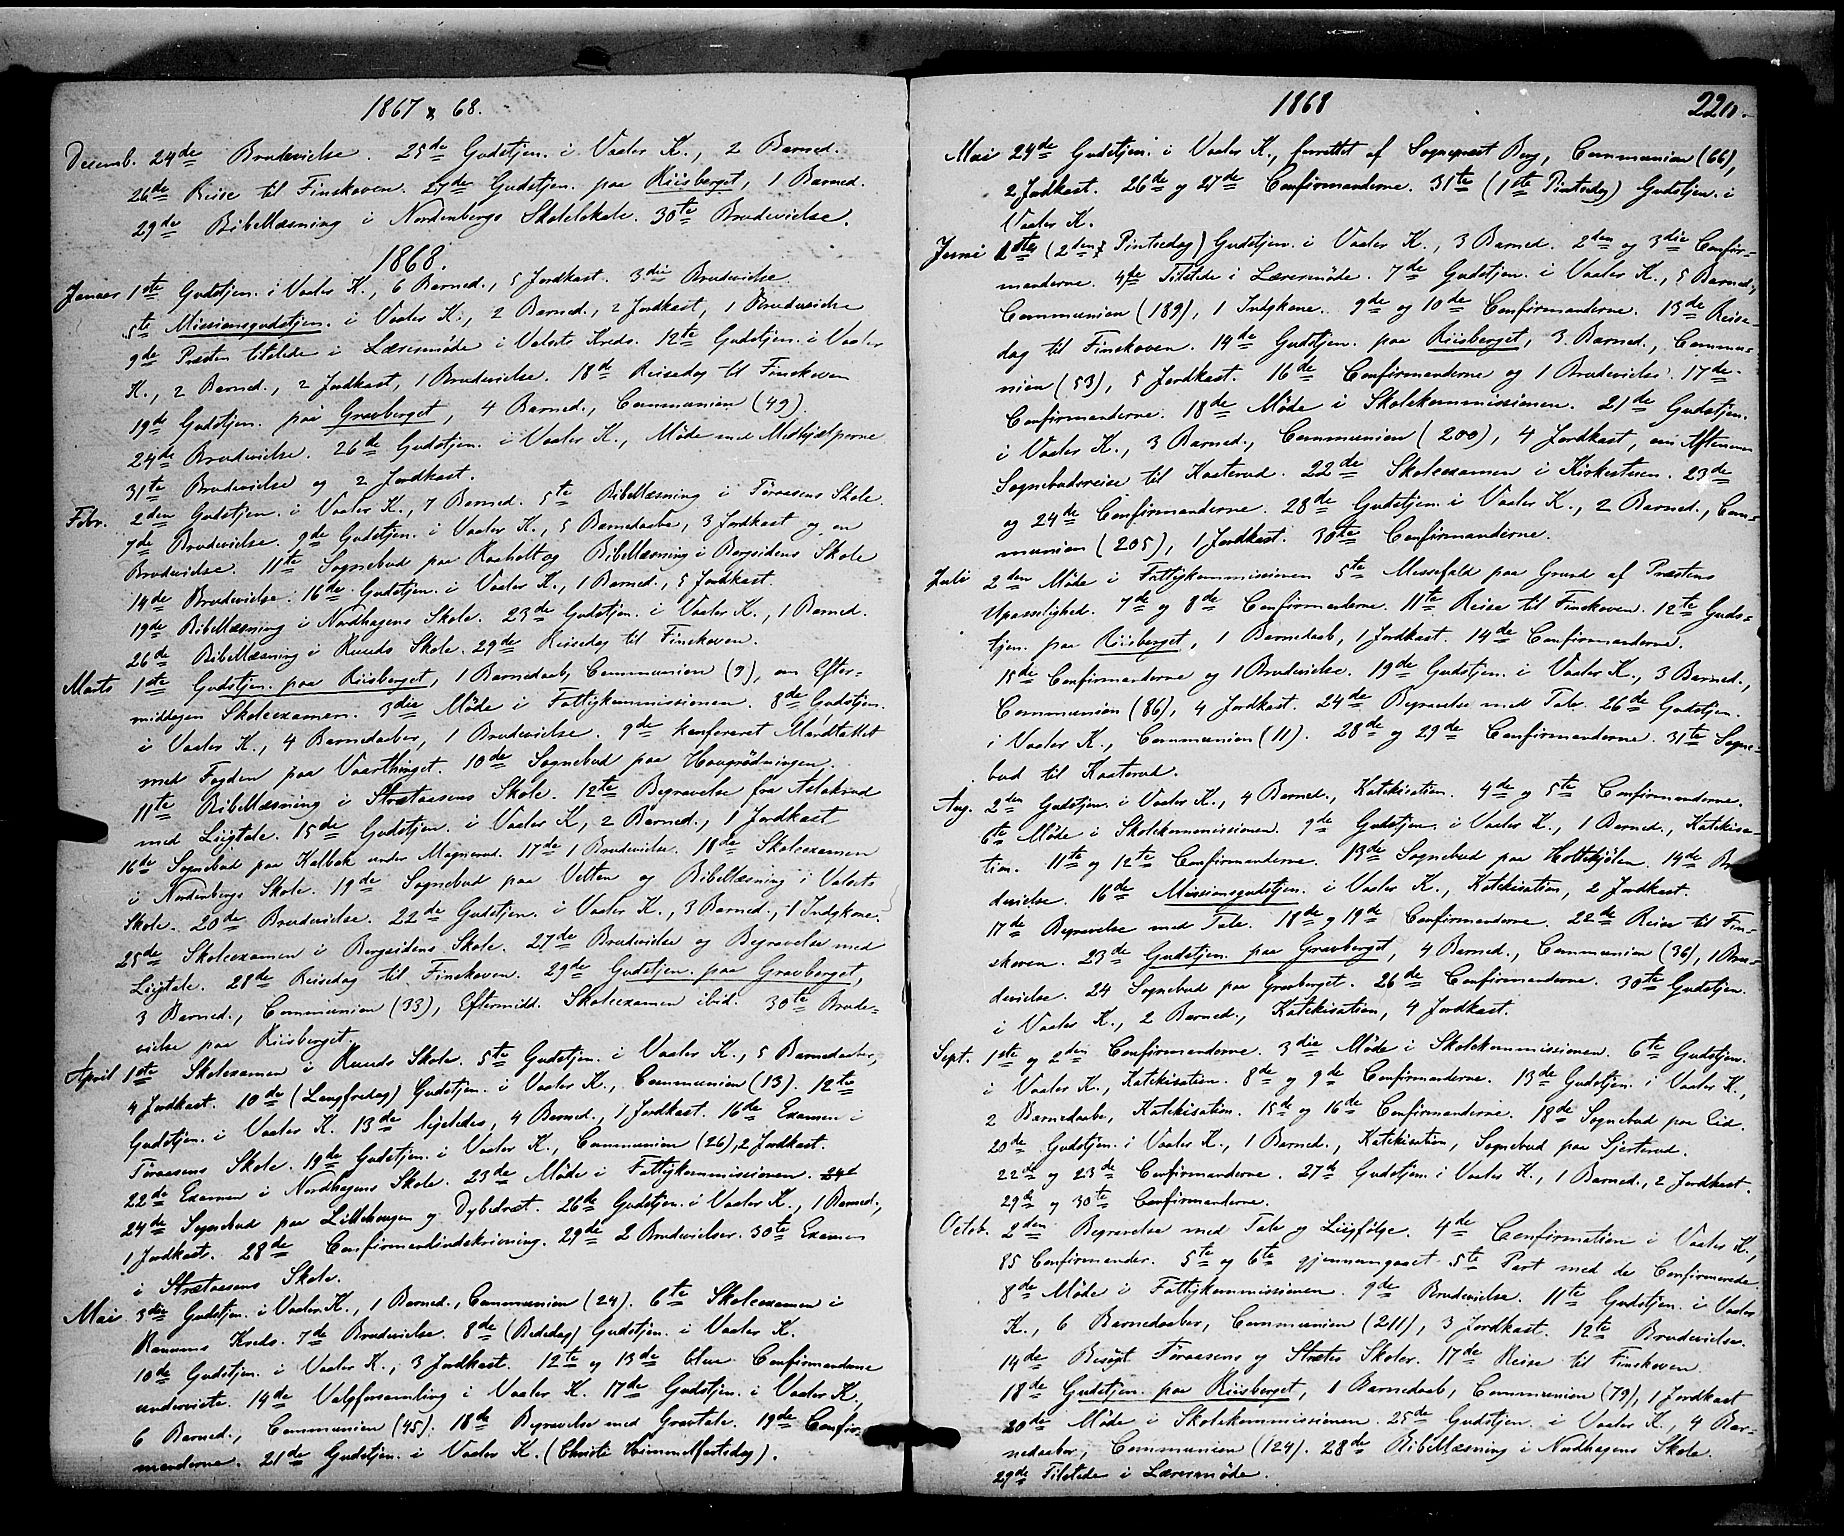 1867 & 68.
Desemb. 24de Brudevielse. 25de Gudstjen. i Vaaler K., 2 Barned.
26de Reise til Finskoven. 27de Gudstjen. paa Riisberget, 1 Barned.
29de Bibellæsning i Nordenbergs Skolelokale. 30te Brudevielse.
1868.
Januar 1ste Gudstjen. i Vaaler K., 6 Barned., 5 Jordkast. 3die Brudevielse.
5te Missionsgudstjen. i Vaaler K., 2 Barned., 2 Jordkast, 1 Brudevielse
9de Præsten tilstede i Læremøde i Valsets Kreds. 12te Gudstjen. i Vaaler
K., 2 Barned., 2 Jordkast, 1 Brudevielse. 18de Reisedag til Finskoven
19de Gudstjen. paa Gravberget, 4 Barned., Communion (49).
24de Brudevielse. 26de Gudstjen. i Vaaler K., Møde med Medhjælperne
31te Brudevielse og 2 Jordkast.
Febr. 2den Gudstjen. i Vaaler K., 7 Barned. 5te Bibellæsning i Føraasens Skole
7de Brudevielse. 9de Gudstjen. i Vaaler K., 5 Barnedaabe, 3 Jordkast og en
Brudevielse. 11te Sognebud paa Raaholt og Bibellæsning i Bergsidens Skole
14de Brudevielse. 16de Gudstjen. i Vaaler K., 1 Barned., 5 Jordkast.
19de Bibellæsning i Nordhagens Skole. 23de Gudstjen. i Vaaler K., 1 Barned.
26de Bibellæsning i Ruuds Skole. 29de Reisedag til Finskoven.
Marts 1ste Gudstjen. paa Riisberget, 1 Barnedaab, Communion (9), om Efter-
middagen Skoleexamen. 3die Møde i Fattigkommissionen. 8de Gudstjen.
i Vaaler K., 4 Barnedaaber, 1 Brudevielse. 9de konfereret Mandtallet
med Fogden paa Vaarthinget. 10de Sognebud paa Haugrødningen.
11te Bibellæsning i Strætaasens Skole. 12te Begravelse fra Aslakrud
med Liigtale. 15de Gudstjen. i Vaaler K, 2 Barned., 1 Jordkast
16de Sognebud paa Kalbak under Magnerud. 17de 1 Brudevielse. 18de Skoleexamen
i Nordenbergs Skole. 19de Sognebud paa Vetten og Bibellæsning i Valsets
Skole. 20de Brudevielse. 22de Gudstjen. i Vaaler K., 3 Barned., 1 Indgkone.
25de Skoleexamen i Bergsidens Skole. 27de Brudevielse og Begravelse med
Liigtale. 28de Reisedag til Finskoven. 29de Gudstjen. paa Gravberget,
3 Barned., Communion (33), Eftermidd. Skoleexamen ibid. 30te Brude-
vielse paa Riisberget.
April 1ste Skoleexamen i Ruuds Skole. 5te Gudstjen. i Vaaler K., 5 Barnedaaber,
4 Jordkast. 10de (Langfredag) Gudstjen. i Vaaler K., Communion (13). 12te
Gudstjen. i Vaaler K. 13de ligeledes, 4 Barned., 1 Jordkast. 16de Examen i
Føraasens Skole. 19de Gudstjen. i Vaaler K., Communion (26), 2 Jordkast.
22de Examen i Nordhagens Skole. 23de Møde i Fattigkommissionen. 24
24de Sognebud paa Lillehaugen og Dybedræt. 26de Gudstjen. i Vaaler K., 1 Barned.,
1 Jordkast. 28de Confirmandindskrivning. 29de 2 Brudevielser. 30te Examen
i Strætaasens Skole.
Mai 3die Gudstjen. i Vaaler K., 1 Barned., Communion (24). 6te Skoleexamen i
Kreds. 7de Brudevielse. 8de (Bededag) Gudstjen. i Vaaler K.
10de Gudstjen. i Vaaler K., 3 Jordkast. 12te og 13de blev Confirmanderne
underviste. 14de Valgforsamling i Vaaler K. 17de Gudstjen. i Vaaler K,
6 Barned., Communion (45). 18de Begravelse med Gravtale. 19de Confir-
manderne. 21de Gudstjen. i Vaaler K. (Christi Himmelfartsdag).
1868
220.
Mai 24de Gudstjen. i Vaaler K., forrettet af Sognepræst Berg, Communion (66),
2 Jordkast. 26de og 27de Confirmanderne. 31te (1ste Pintsedag) Gudstjen. i
Vaaler K.
Juni 1ste (2den Pintsedag) Gudstjen. i Vaaler K., 3 Barned. 2den og 3die Confir-
manderne. 4de Tilstede i Læremøde. 7de Gudstjen. i Vaaler K., 5 Barned.,
Communion (189), 1 Indgkone. 9de og 10de Confirmanderne. 13de Reise-
dag til Finskoven. 14de Gudstjen. paa Riisberget, 3 Barned., Commu-
nion (53), 5 Jordkast. 16de Confirmanderne og 1 Brudevielse. 17de
Confirmanderne. 18de Møde i Skolekommissionen. 21de Gudstjen.
i Vaaler K., 3 Barned., Communion (200), 4 Jordkast, om Aftenen
Sognebudsreise til Kaaterud. 22de Skoleexamen i Kirkestuen. 23de
og 24de Confirmanderne. 28de Gudstjen. i Vaaler K., 2 Barned., Com-
munion (205), 1 Jordkast. 30te Confirmanderne.
Juli 2den Møde i Fattigkommissionen 5te Messefald paa Grund af Præstens
Upasselighed. 7de og 8de Confirmanderne. 11te Reise til Finskoven. 12te Guds-
tjen. paa Riisberget, 1 Barnedaab, 1 Jordkast. 14de Confirmanderne.
15de Confirmanderne og 1 Brudevielse. 19de Gudstjen. i Vaaler K., 3 Barned.,
Communion (86), 4 Jordkast. 24de Begravelse med Tale. 26de Gudstjen.
i Vaaler K., Communion (11). 28de og 29de Confirmanderne. 31te Sogne-
bud til Kaaterud.
Aug. 2den Gudstjen. i Vaaler K., 4 Barned., Katekisation. 4de og 5te Confirmanderne.
6te Møde i Skolekommissionen. 9de Gudstjen. i Vaaler K., 1 Barned., Katekisa-
tion. 11te og 12te Confirmanderne. 13de Sognebud paa Holtekjølen. 14de Bru-
devielse. 16de Missionsgudstjen. i Vaaler K., Katekisation, 2 Jordkast.
17de Begravelse med Tale. 18de og 19de Confirmanderne. 22de Reise til Fin-
skoven. 23de Gudstjen. paa Gravberget, 4 Barned., Communion (36), 1 Bru-
devielse. 24 Sognebud paa Gravberget. 26de Confirmanderne. 30te Gudstjen.
i Vaaler K., 2 Barned., Katekisation, 4 Jordkast.
Sept. 1ste og 2den Confirmanderne. 3die Møde i Skolekommissionen. 6te Gudstjen.
i Vaaler K., Katekisation. 8de og 9de Confirmanderne. 13de Gudstjen. i Vaaler K.,
2 Barnedaabe, Katekisation. 15de og 16de Confirmanderne. 18de Sognebud paa Eid.
20de Gudstjen. i Vaaler K., 1 Barned., Katekisation, Sognebud paa Sjerterud.
22de og 23de Confirmanderne. 27de Gudstjen. i Vaaler K., 1 Barned., 2 Jordkast.
29de og 30te Confirmanderne.
Octob. 2den Begravelse med Tale og Liigfølge. 4de Confirmation i Vaaler K.,
85 Confirmander. 5te og 6te gjennemgaaet 5te Part med de Confirmerede
8de Møde i Fattigkommissionen. 9de Brudevielse. 11te Gudstjen. i Vaaler
K., 6 Barnedaaber, Communion (211), 3 Jordkast. 12te Brudevielse.
14de Besøgt Føraasens og Strætes Skoler. 17de Reise til Finskoven
18de Gudstjen. paa Riisberget, 1 Barnedaab, Communion (79), 1 Jordkast
20de Møde i Skolekommissionen. 25de Gudstjen. i Vaaler K., 4 Bar-
nedaaber, Communion (124). 28de Bibellæsning i Nordhagens Skole.
29de Tilstede i Læremøde.